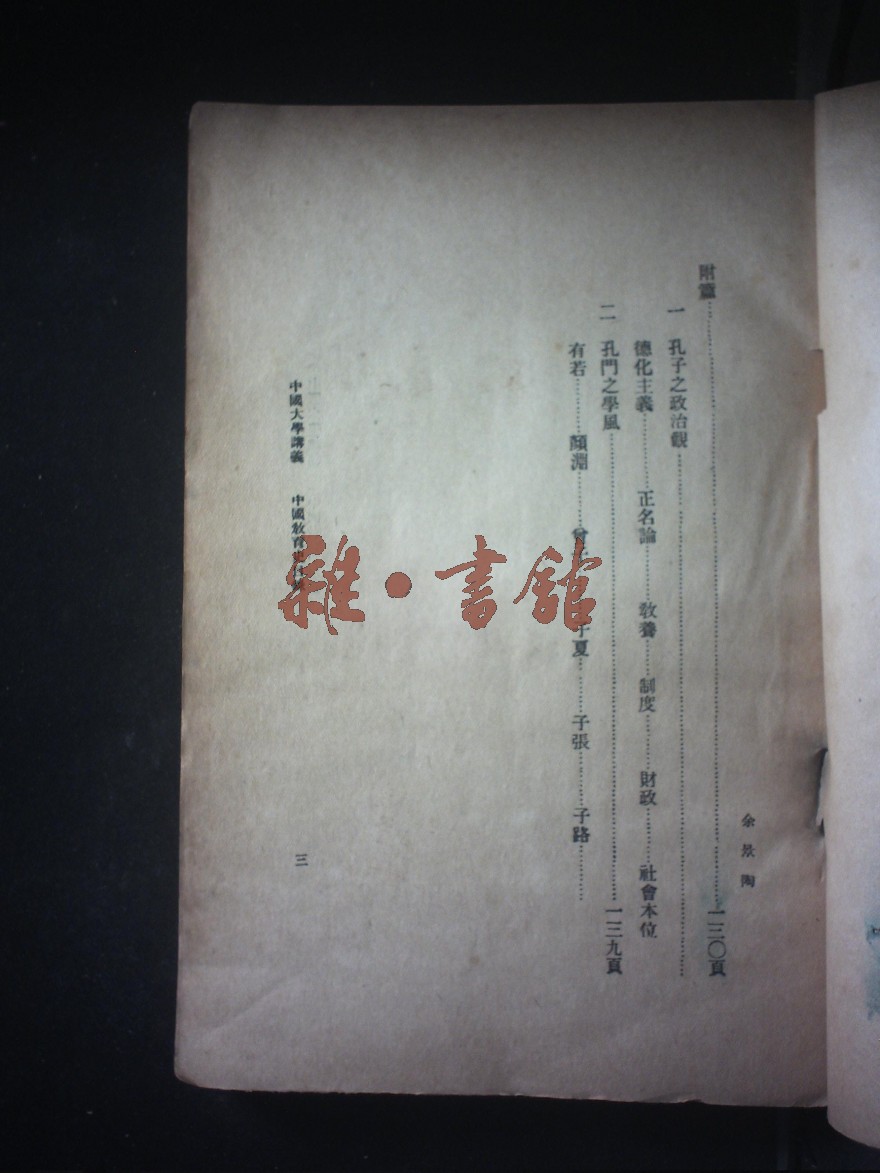 余景陶
附篇……一三〇頁
一 孔子之政治觀……
德化主義……正名論……教養……制度……財政……社會本位
二 孔門之學風……一三九頁
有若……顏淵……子夏……子張……子路……
中國大學講義 中國教育史
三
雜·書館